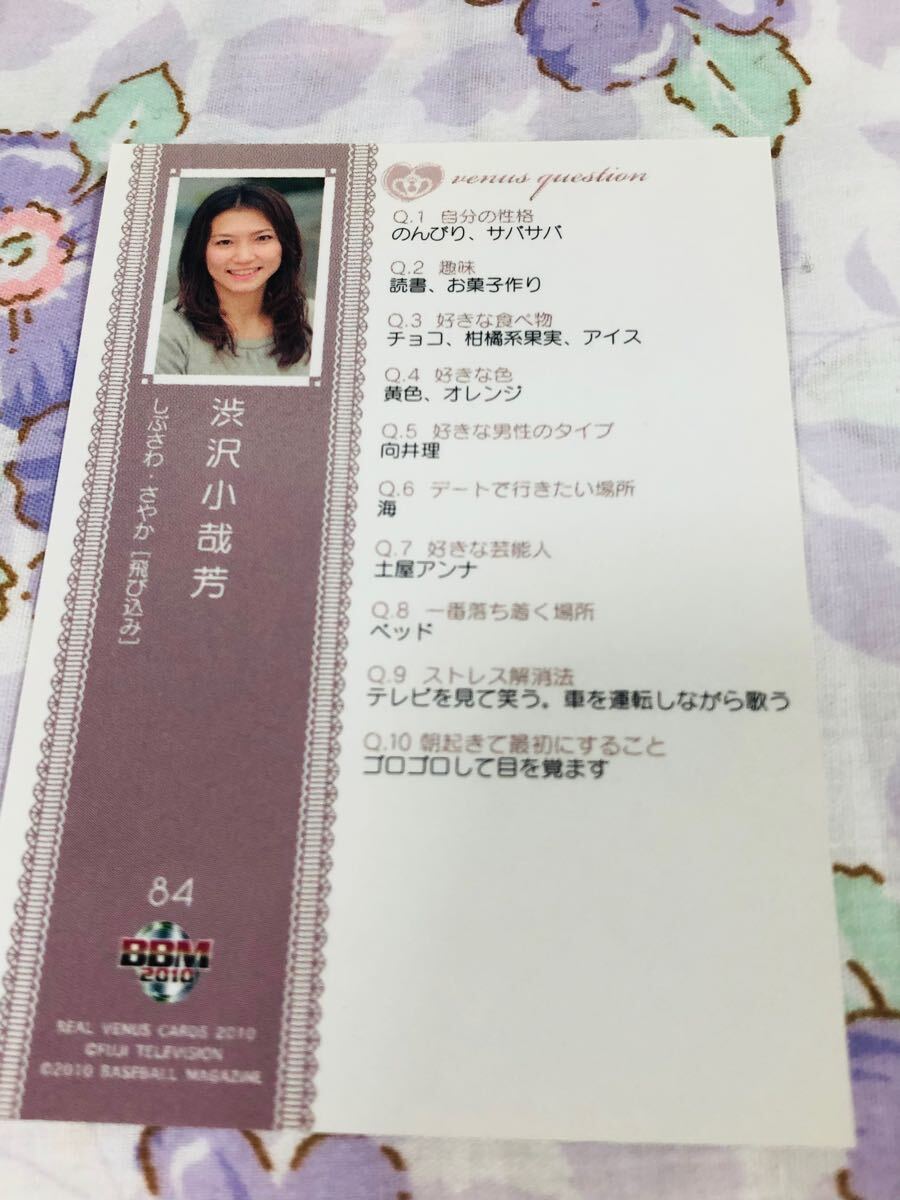 渋沢小哉芳
しぶさわ・さやか [飛び込み]
84
BBM
2010
REAL VENUS CARDS 2010
©FUJI TELEVISION
©2010 BASEBALL MAGAZINE
venus question
Q.1 自分の性格
のんびり、サバサバ
Q.2 趣味
読書、お菓子作り
Q.3 好きな食べ物
チョコ、柑橘系果実、アイス
Q.4 好きな色
黄色、オレンジ
Q.5 好きな男性のタイプ
向井理
Q.6 デートで行きたい場所
海
Q.7 好きな芸能人
土屋アンナ
Q.8 一番落ち着く場所
ベッド
Q.9 ストレス解消法
テレビを見て笑う。車を運転しながら歌う
Q.10 朝起きて最初にすること
ゴロゴロして目を覚ます